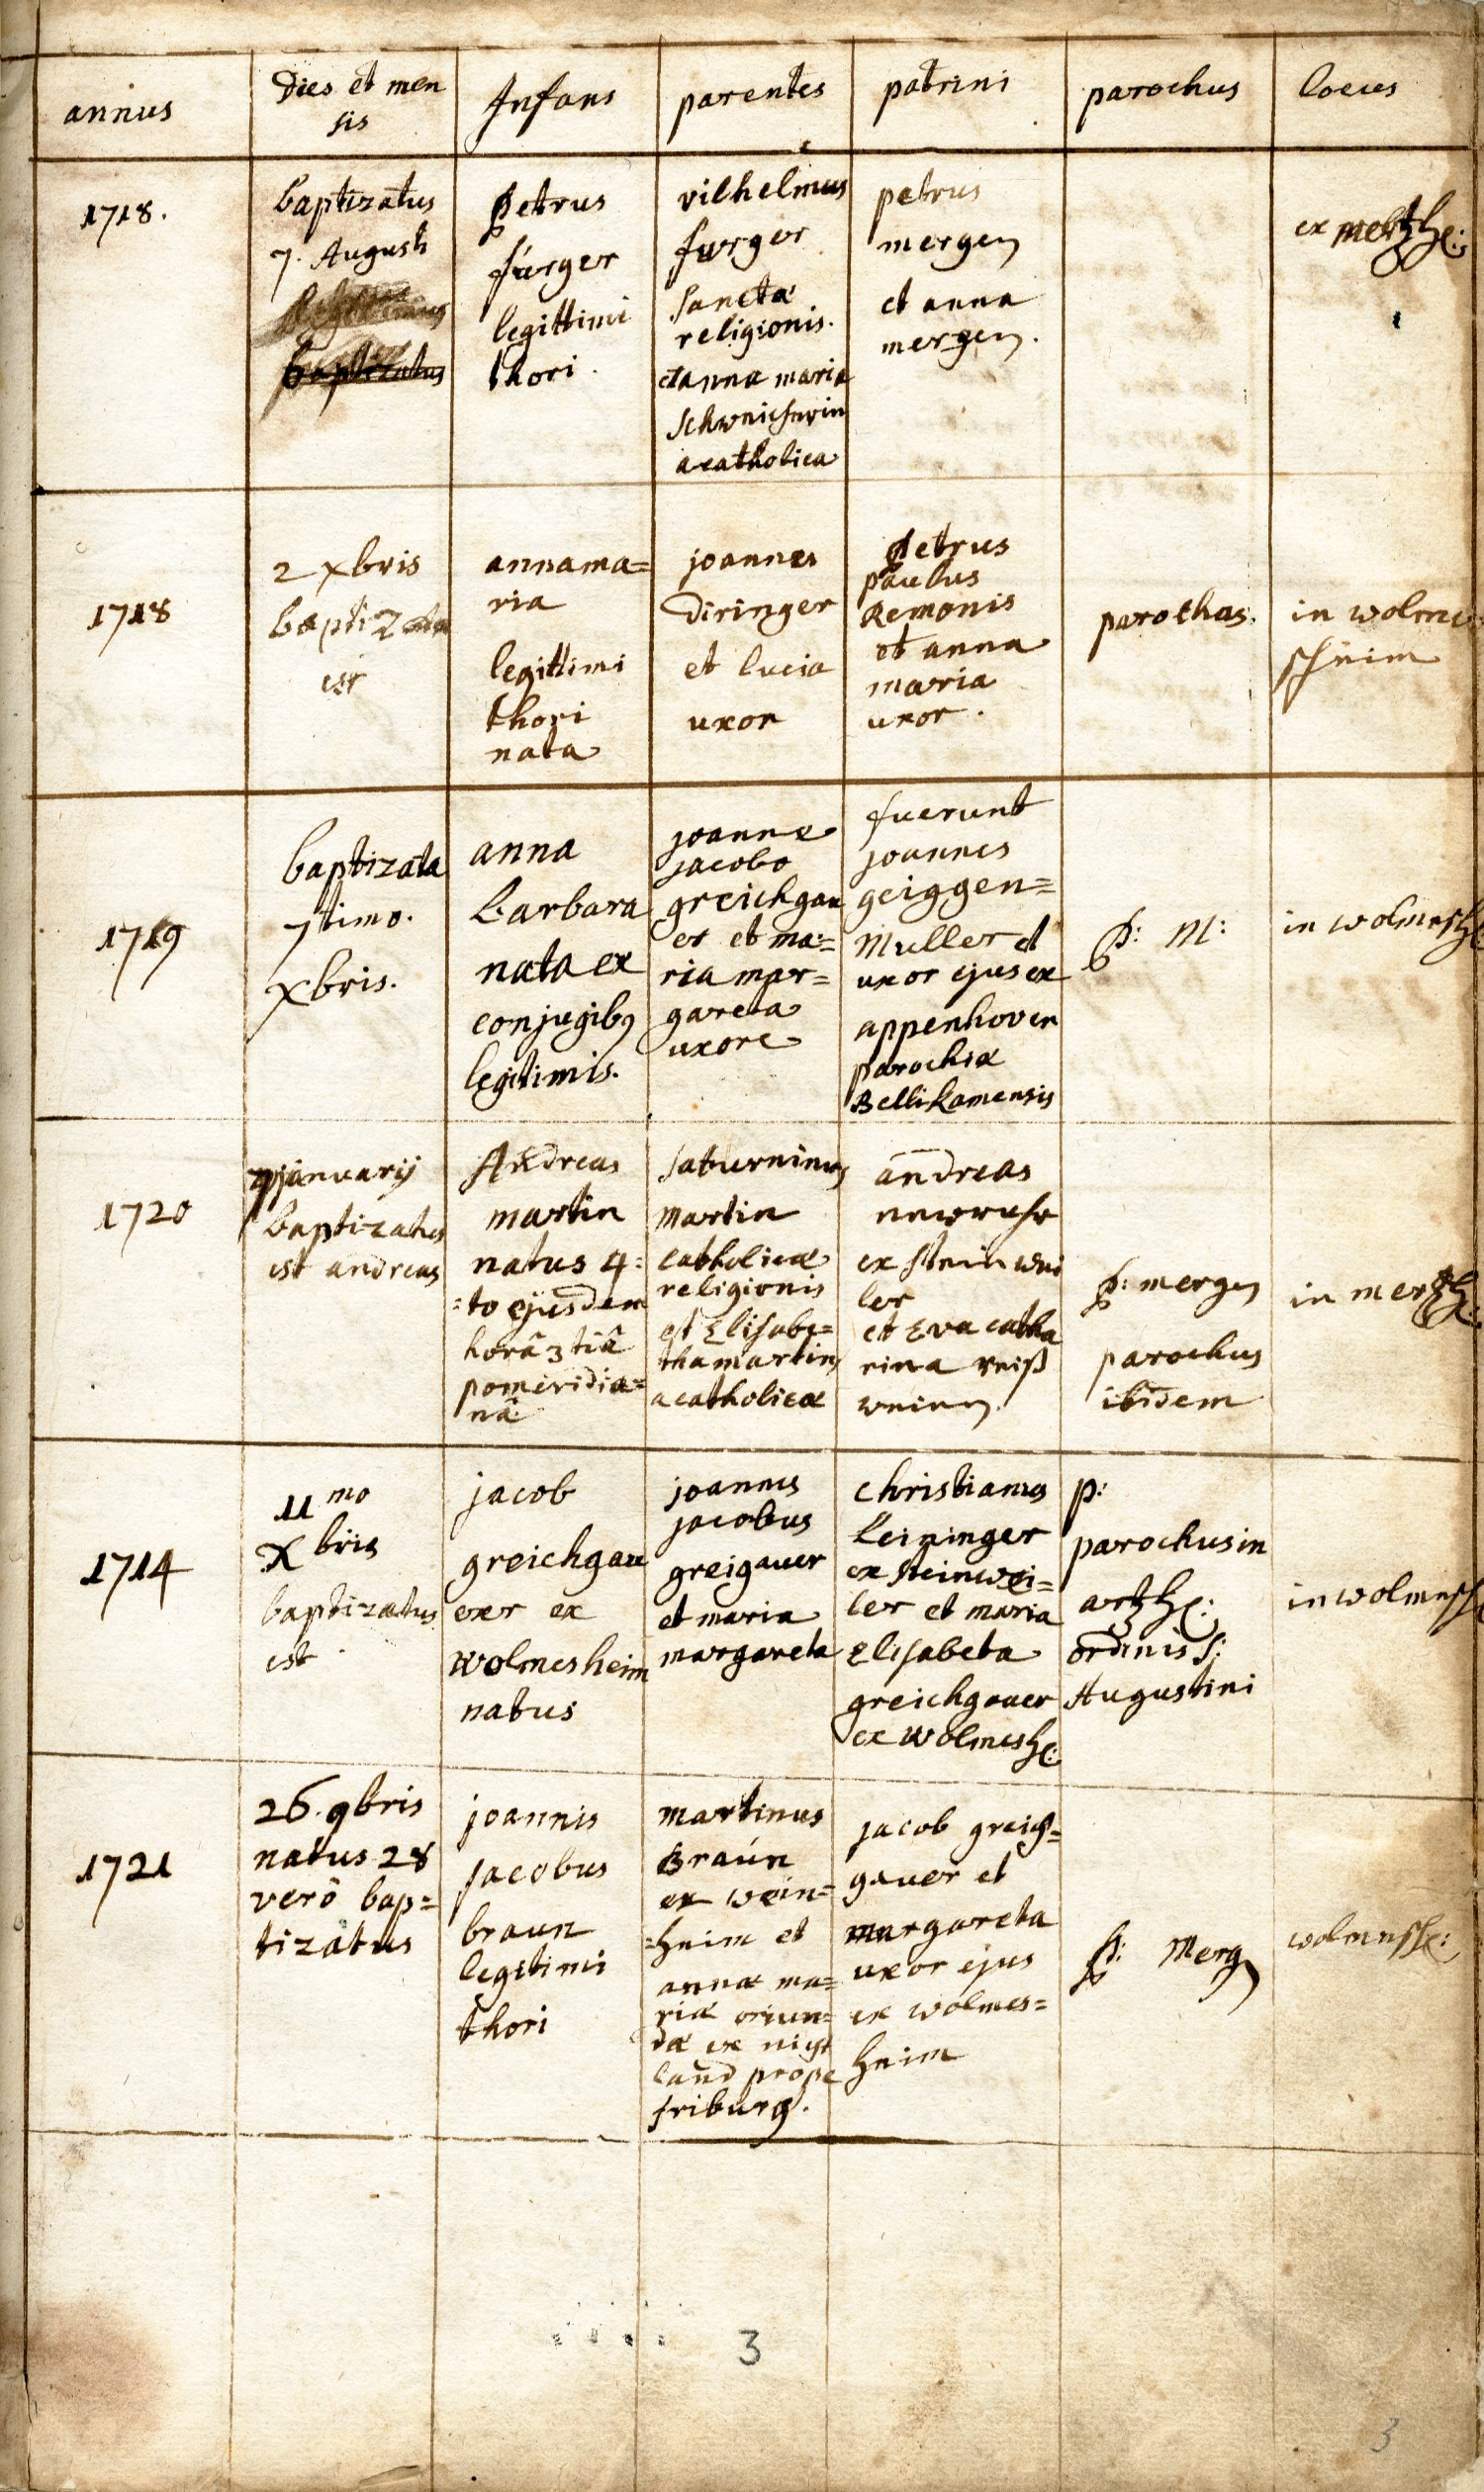 annus
Dies et men
sis
Infans
parentes
patrini
parochus
locus
1718.
baptizatus
7. Augusti
baptizatus
Petrus
fürger
legittimi
thori.
vilhelmus
furger
sanctæ
religionis.
et anna maria
acatholica
petrus
mergen
et anna
mergen.
ex mertzh:
1718
2 xbris
baptizata
est
annama=
ria
legittimi
thori
nata
joannes
diringer
et lucia
uxor
Petrus
paulus
Remonis
et anna
maria
uxor.
parochus.
in wolme
sheim
1719
baptizata
7timo.
xbris.
anna
barbara
nata ex
conjugibꝯ
legitimis.
joanne
jacobo
greichgau
er et ma=
ria mar=
gareta
uxore
fuerunt
joannes
geiggen=
Muller et
uxor ejus ex
appenhoven
parochiæ
Bellikamensis
P: M:
in wolmesh:
1720
7 januarij
baptizatus
est andreas
Andreas
martin
natus 4=
=to ejusdem
horâ 3tiâ
pomeridia=
nâ
saturninus
martin
catholicæ
religionis
et Elisabe=
tha martin
acatholicæ
andreas
ex steinwei
ler
et Eva catha
rina reiß
P: mergen
parochus
ibidem
in mertzh:
1714
11mo
xbris
baptizatus
est
jacob
greichgau
er ex
wolmesheim
natus
joannes
jacobus
greigauer
et maria
margareta
christianus
Leininger
ex steinwei=
ler et maria
Elisabeta
greichgauer
ex wolmesh:
p:
parochus in
artzh:
ordinis S:
Augustini
in wolmesh:
1721
26. 9bris
natus 28
verò bap=
tizatus
joannis
jacobus
braun
legitimi
thori
martinus
Braún
ex wein=
=heim et
annæ ma=
riæ oriun=
dæ ex nicht
land prope
friburg.
jacob greich=
gauer et
margareta
uxor ejus
ex wolmes=
heim
P: Merg
wolmesh:
3
3